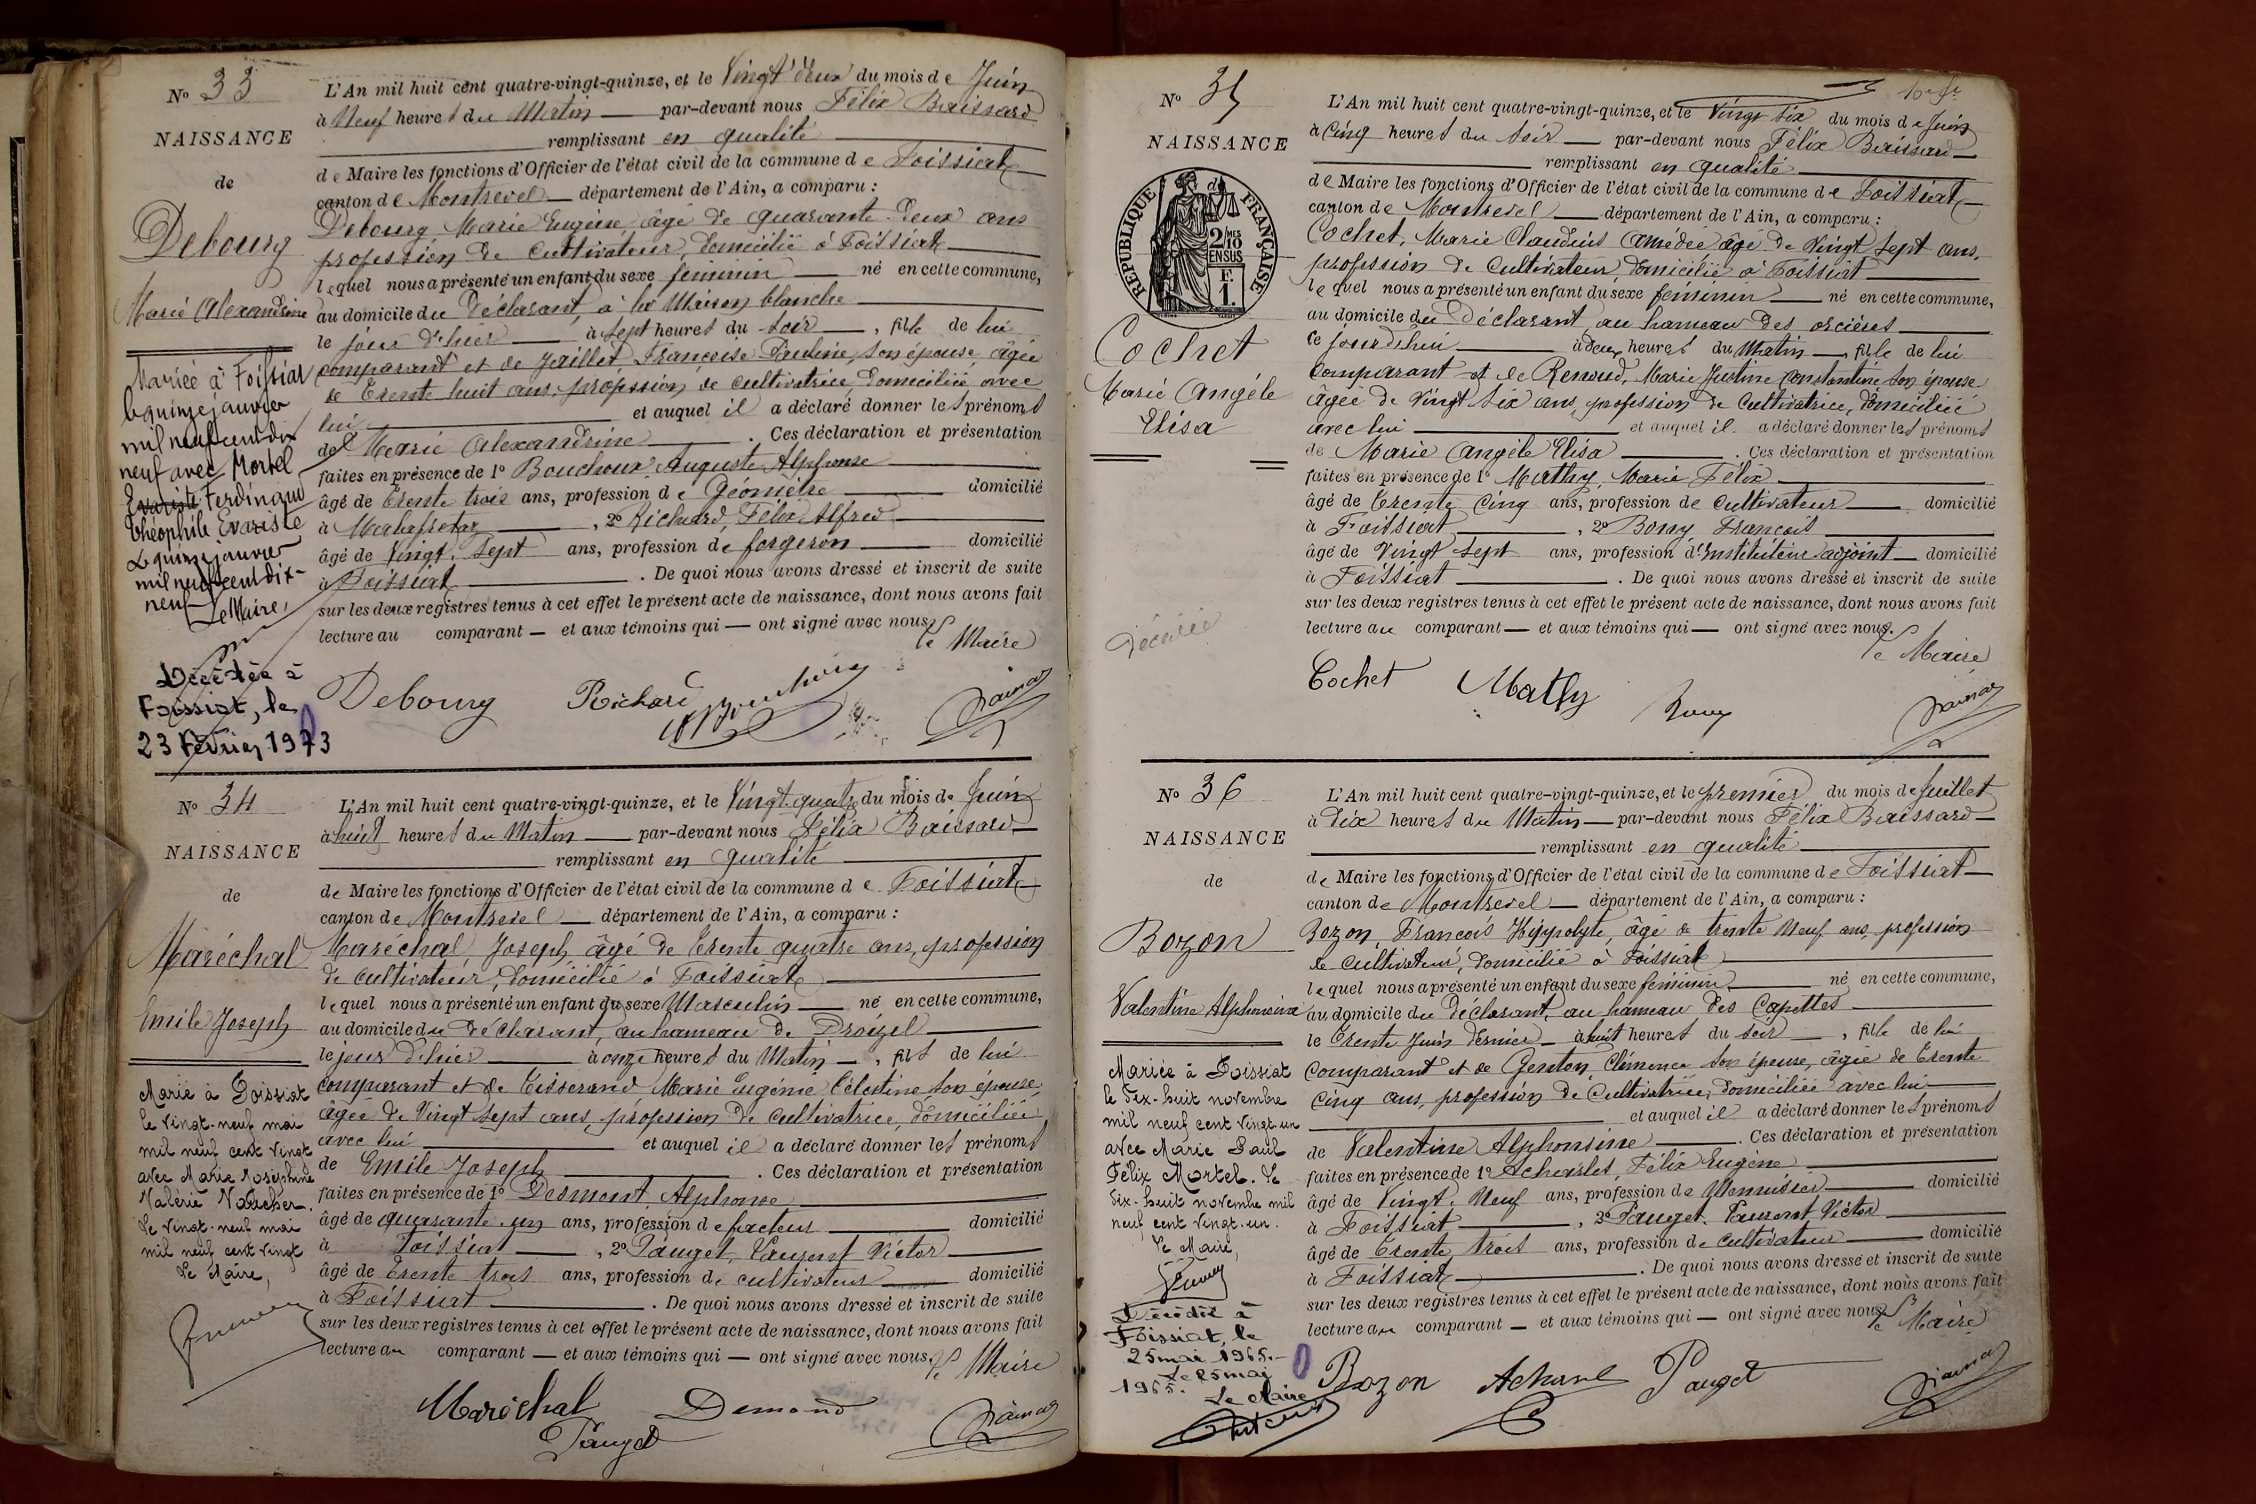 N° 33
NAISSANCE
de
Debourg
Marie Alexandrine
Mariée à Foissiat
le quinze janvier
mil neuf cent dix
neuf avec Mortel
Evariste Ferdinand
Théophile Evariste
Le quinze janvier
mil neuf cent dix-
neuf
Le Maire,
Décédée à
Foissiat, le
23 Février 1973
L'An mil huit cent quatre-vingt-quinze, et le Vingt deux du mois de Juin
à Neuf heures du Matin par-devant nous Félix Baissard
remplissant en qualité
de Maire les fonctions d'Officier de l'état civil de la commune de Foissiat
canton de Montrevel département de l'Ain, a comparu :
Debourg, Marie Eugène, âgé de quarante-deux ans
profession de Cultivateur, domicilié à Foissiat
lequel nous a présenté un enfant du sexe féminin né en cette commune,
au domicile du Déclarant, à la Maison blanche
le jour d'hier à sept heures du soir, fille de lui
comparant et de Jaillet Françoise Pauline, son épouse, âgée
de Trente huit ans, profession de cultivatrice domiciliée avec
lui et auquel il a déclaré donner les prénoms
de Marie Alexandrine. Ces déclaration et présentation
faites en présence de 1° Bouchoux Auguste Alphonse
âgé de trente trois ans, profession de Géomètre domicilié
à Malafretaz, 2° Richard, Félix Alfred
âgé de Vingt-sept ans, profession de forgeron domicilié
à Foissiat. De quoi nous avons dressé et inscrit de suite
sur les deux registres tenus à cet effet le présent acte de naissance, dont nous avons fait
lecture au comparant — et aux témoins qui — ont signé avec nous.
Le Maire
Debourg Richard
N° 34
NAISSANCE
de
Maréchal
Emile Joseph
Marié à Foissiat
le vingt-neuf mai
mil neuf cent vingt
avec Marie Joséphine
Valérie
Le vingt-neuf mai
mil neuf cent vingt
Le Maire,
L'An mil huit cent quatre-vingt-quinze, et le Vingt-quatre du mois de Juin
à huit heures du Matin par-devant nous Félix Baissard
remplissant en qualité
de Maire les fonctions d'Officier de l'état civil de la commune de Foissiat
canton de Montrevel département de l'Ain, a comparu :
Maréchal, Joseph, âgé de trente quatre ans, profession
de cultivateur, domicilié à Foissiat
lequel nous a présenté un enfant du sexe Masculin né en cette commune,
au domicile du Déclarant, au hameau de Droizel
le jour d'hier à onze heures du Matin, fils de lui
comparant et de Tisserand Marie Eugénie Célestine son épouse,
âgée de Vingt sept ans, profession de cultivatrice, domiciliée
avec lui et auquel il a déclaré donner les prénoms
de Emile Joseph. Ces déclaration et présentation
faites en présence de 1° Desmont, Alphonse
âgé de quarante-un ans, profession de facteur domicilié
à Foissiat, 2° Pauget, Laurent Victor
âgé de trente trois ans, profession de cultivateur domicilié
à Foissiat. De quoi nous avons dressé et inscrit de suite
sur les deux registres tenus à cet effet le présent acte de naissance, dont nous avons fait
lecture au comparant — et aux témoins qui — ont signé avec nous.
Le Maire
Maréchal Demond
Pauget
N° 35
NAISSANCE
RÉPUBLIQUE FRANÇAISE
2/10 EN SUS
F. 1.
Cochet
Marie Angéle
Elisa
Décédée
L'An mil huit cent quatre-vingt-quinze, et le Vingt six du mois de Juin
à Cinq heures du soir par-devant nous Félix Baissard
remplissant en qualité
de Maire les fonctions d'Officier de l'état civil de la commune de Foissiat
canton de Montrevel département de l'Ain, a comparu :
Cochet, Marie Claudius Amédée âgé de Vingt sept ans,
profession de Cultivateur domicilié à Foissiat
lequel nous a présenté un enfant du sexe féminin né en cette commune,
au domicile du Déclarant, au hameau des orcières
ce jourd'hui à deux heures du Matin, fille de lui
comparant et de Renoud, Marie Justine Constantine son épouse
âgée de Vingt six ans, profession de Cultivatrice, domiciliée
avec lui et auquel il a déclaré donner les prénoms
de Marie Angéle Elisa. Ces déclaration et présentation
faites en présence de 1° Mathy, Marie Félix
âgé de trente cinq ans, profession de Cultivateur domicilié
à Foissiat, 2° Bony François
âgé de Vingt sept ans, profession d'Instituteur adjoint domicilié
à Foissiat. De quoi nous avons dressé et inscrit de suite
sur les deux registres tenus à cet effet le présent acte de naissance, dont nous avons fait
lecture au comparant — et aux témoins qui — ont signé avec nous.
Le Maire
Cochet Mathy
N° 36
NAISSANCE
de
Bozon
Valentine Alphonsine
Mariée à Foissiat
le dix-huit novembre
mil neuf cent vingt-un
avec Marie Paul
Félix Mortel. Le
dix-huit novembre mil
neuf cent vingt-un.
Le Maire,
Décédée à
Foissiat, le
25 mai 1965.
Le 25 mai
1965.
Le Maire
L'An mil huit cent quatre-vingt-quinze, et le premier du mois de Juillet
à dix heures du Matin par-devant nous Félix Baissard
remplissant en qualité
de Maire les fonctions d'Officier de l'état civil de la commune de Foissiat
canton de Montrevel département de l'Ain, a comparu :
Bozon, François Hyppolyte, âgé de trente neuf ans, profession
de cultivateur, domicilié à Foissiat
lequel nous a présenté un enfant du sexe féminin né en cette commune,
au domicile du Déclarant, au hameau des Capettes
le trente Juin dernier à huit heures du soir, fille de lui
comparant et de Genton Clémence son épouse, âgée de trente
cinq ans, profession de Cultivatrice, domiciliée avec lui
et auquel il a déclaré donner les prénoms
de Valentine Alphonsine. Ces déclaration et présentation
faites en présence de 1° Acharles, Félix Eugène
âgé de Vingt-Neuf ans, profession de Menuisier domicilié
à Foissiat, 2° Pauget Laurent Victor
âgé de trente trois ans, profession de cultivateur domicilié
à Foissiat. De quoi nous avons dressé et inscrit de suite
sur les deux registres tenus à cet effet le présent acte de naissance, dont nous avons fait
lecture au comparant — et aux témoins qui — ont signé avec nous.
Le Maire
Bozon Pauget